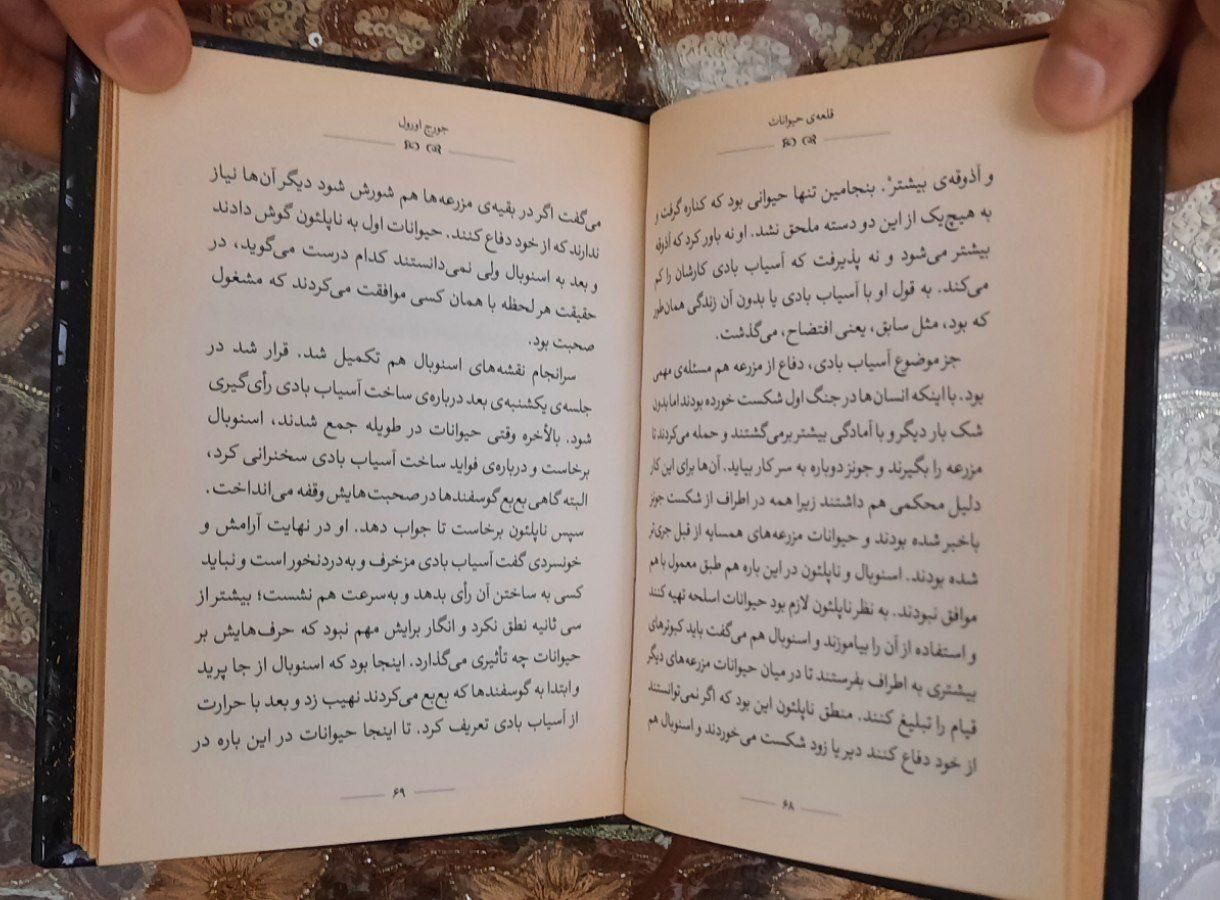 قلعه‌ی حیوانات
و آذوقه‌ی بیشتر. بنجامین تنها حیوانی بود که کناره گرفت و
به هیچ‌یک از این دو دسته ملحق نشد. او نه باور کرد که آذوقه
بیشتر می‌شود و نه پذیرفت که آسیاب بادی کارشان را کم
می‌کند. به قول او با آسیاب بادی یا بدون آن زندگی همان‌طور
که بود، مثل سابق، یعنی افتضاح، می‌گذشت.
جز موضوع آسیاب بادی، دفاع از مزرعه هم مسئله‌ی مهمی
بود. با اینکه انسان‌ها در جنگ اول شکست خورده بودند اما بدون
شک بار دیگر و با آمادگی بیشتر برمی‌گشتند و حمله می‌کردند تا
مزرعه را بگیرند و جونز دوباره به سر کار بیاید. آن‌ها برای این کار
دلیل محکمی هم داشتند زیرا همه در اطراف از شکست جونز
باخبر شده بودند و حیوانات مزرعه‌های همسایه از قبل جری‌تر
شده بودند. اسنوبال و ناپلئون در این باره هم طبق معمول با هم
موافق نبودند. به نظر ناپلئون لازم بود حیوانات اسلحه تهیه کنند
و استفاده از آن را بیاموزند و اسنوبال هم می‌گفت باید کبوترهای
بیشتری به اطراف بفرستند تا در میان حیوانات مزرعه‌های دیگر
قیام را تبلیغ کنند. منطق ناپلئون این بود که اگر نمی‌توانستند
از خود دفاع کنند دیر یا زود شکست می‌خوردند و اسنوبال هم
۶۸
جورج اورول
می‌گفت اگر در بقیه‌ی مزرعه‌ها هم شورش شود دیگر آن‌ها نیاز
ندارند که از خود دفاع کنند. حیوانات اول به ناپلئون گوش دادند
و بعد به اسنوبال ولی نمی‌دانستند کدام درست می‌گوید، در
حقیقت هر لحظه با همان کسی موافقت می‌کردند که مشغول
صحبت بود.
سرانجام نقشه‌های اسنوبال هم تکمیل شد. قرار شد در
جلسه‌ی یکشنبه‌ی بعد درباره‌ی ساخت آسیاب بادی رأی‌گیری
شود. بالأخره وقتی حیوانات در طویله جمع شدند، اسنوبال
برخاست و درباره‌ی فواید ساخت آسیاب بادی سخنرانی کرد،
البته گاهی بع‌بع گوسفندها در صحبت‌هایش وقفه می‌انداخت.
سپس ناپلئون برخاست تا جواب دهد. او در نهایت آرامش و
خونسردی گفت آسیاب بادی مزخرف و به‌دردنخور است و نباید
کسی به ساختن آن رأی بدهد و به‌سرعت هم نشست؛ بیشتر از
سی ثانیه نطق نکرد و انگار برایش مهم نبود که حرف‌هایش بر
حیوانات چه تأثیری می‌گذارد. اینجا بود که اسنوبال از جا پرید
و ابتدا به گوسفندها که بع‌بع می‌کردند نهیب زد و بعد با حرارت
از آسیاب بادی تعریف کرد. تا اینجا حیوانات در این باره در
۶۹